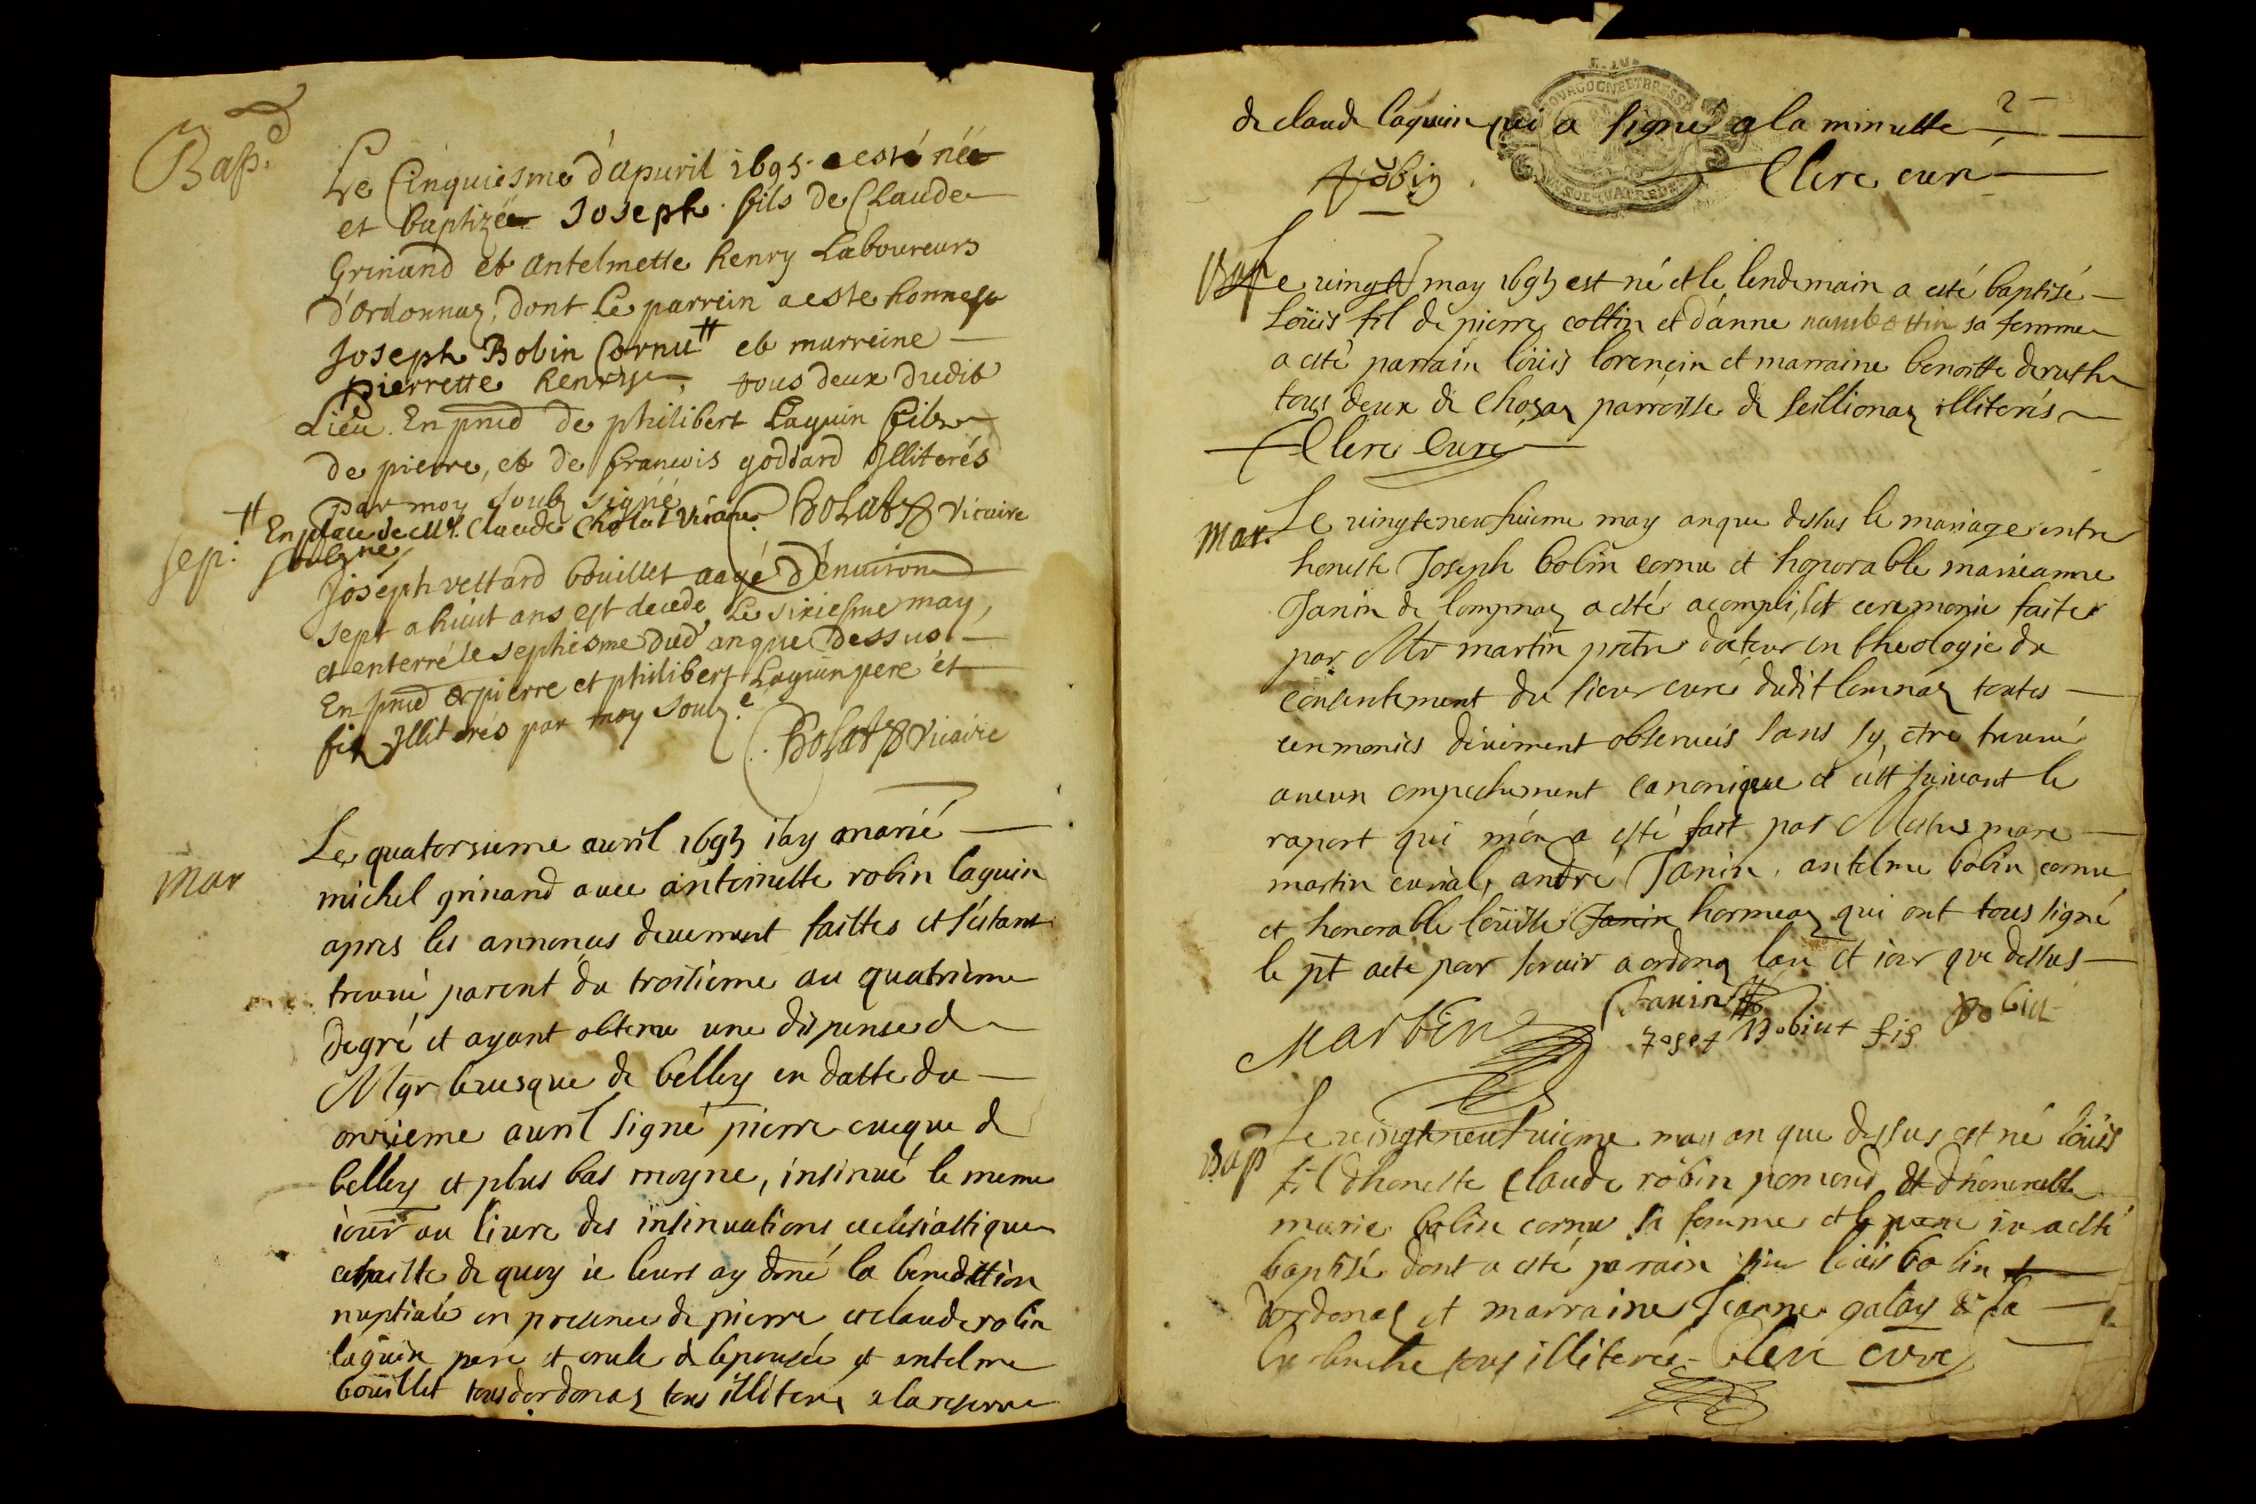 Bap.
Le Cinquiesme d'Apuril 1695. a esté née
et baptizée Joseph fils de Claude
Grinand et Antelmette henry Laboureurs
d'Ordonnaz, dont Le parrein a este honneste
Joseph Bobin Cornu # et marreine
pierrette henrye, tous deux dudit
Lieu. En pñid de philibert Laguin fils
de pierre, et de francois goddard Illiterés
par moy soubz signé Cholat vicaire
# En place de Mr. Claude Cholat Vicaire
soubzné
sep:
Joseph vettard bouillet aagé d'enuiron
sept a huut ans est decede, Le sixiesme may,
et enterré le septiesme dud an que Dessus
En pñid de pierre et philibert Laguin pere et
fis Illiterés par moy soubz.é
Cholat vicaire
Mar
Le quatorsieme auril 1695 i'ay marié
michel grinand auec antoinette robin laguin
apres les annonces deuement faittes et s'estant
treuué parent du troisieme au quatrieme
degré et ayant obtenu une dispense d
Mgr leuesque de belley en datte du
onzieme auril signé pierre eueque d
belley et plus bas moyne, insinué le meme
iour au liure des insinuations ecclesiastiques
ensuitte de quoy ie leurs ay doné la benediction
nuptiale en presence de pierre et claude robin
laguin pere et oncle d lepousée et antelme
bouillet tous dordonaz tous illiterés a la reserue
de claude laguin qui a signé a la minutte
Robin Clerc curé
Bap
Le uingt may 1695 est né et le lendemain a esté baptisé
Loüis fil de pierre collin et d'anne sa femme
a esté parrain loüis lorencin et marraine benoitte deruth
tous deux de Chosaz parroisse de Seillionaz illiterés
Clerc Curé
Mar.
Le uingtneufuieme may an que dessus le mariage entre
honeste Joseph bobin cornu et honorable marieanne
Janin de lompnaz a esté acompli, et ceremonie faite
par Mr martin pretre docteur en theologie du
consentement du sieur curé dudit lomnaz toutes
ceremonies deüement obseruées sans sy etre treuué
aucun empechement canonique et c'est suivant le
raport qui m'en a esté fait par Mestres marc
martin curial, andré Janin, antelme bobin cornu
et honorable loüise Janin hormeaz qui ont tous signé
le pñt acte pour seruir a ordonaz lan et iour que dessus
Martin Janin
Josef Bobint fis Bobin
Bap
Le uingtneufuieme may an que dessus est né loüis
fil dhoneste claude robin poncond et dhonorable
marie bobin cornu sa femme et le meme iour a esté
baptisé dont a esté parrain sieur loüis bobin
dordonaz et marraine Jeanne galay de la
tous illiterés Clerc curé